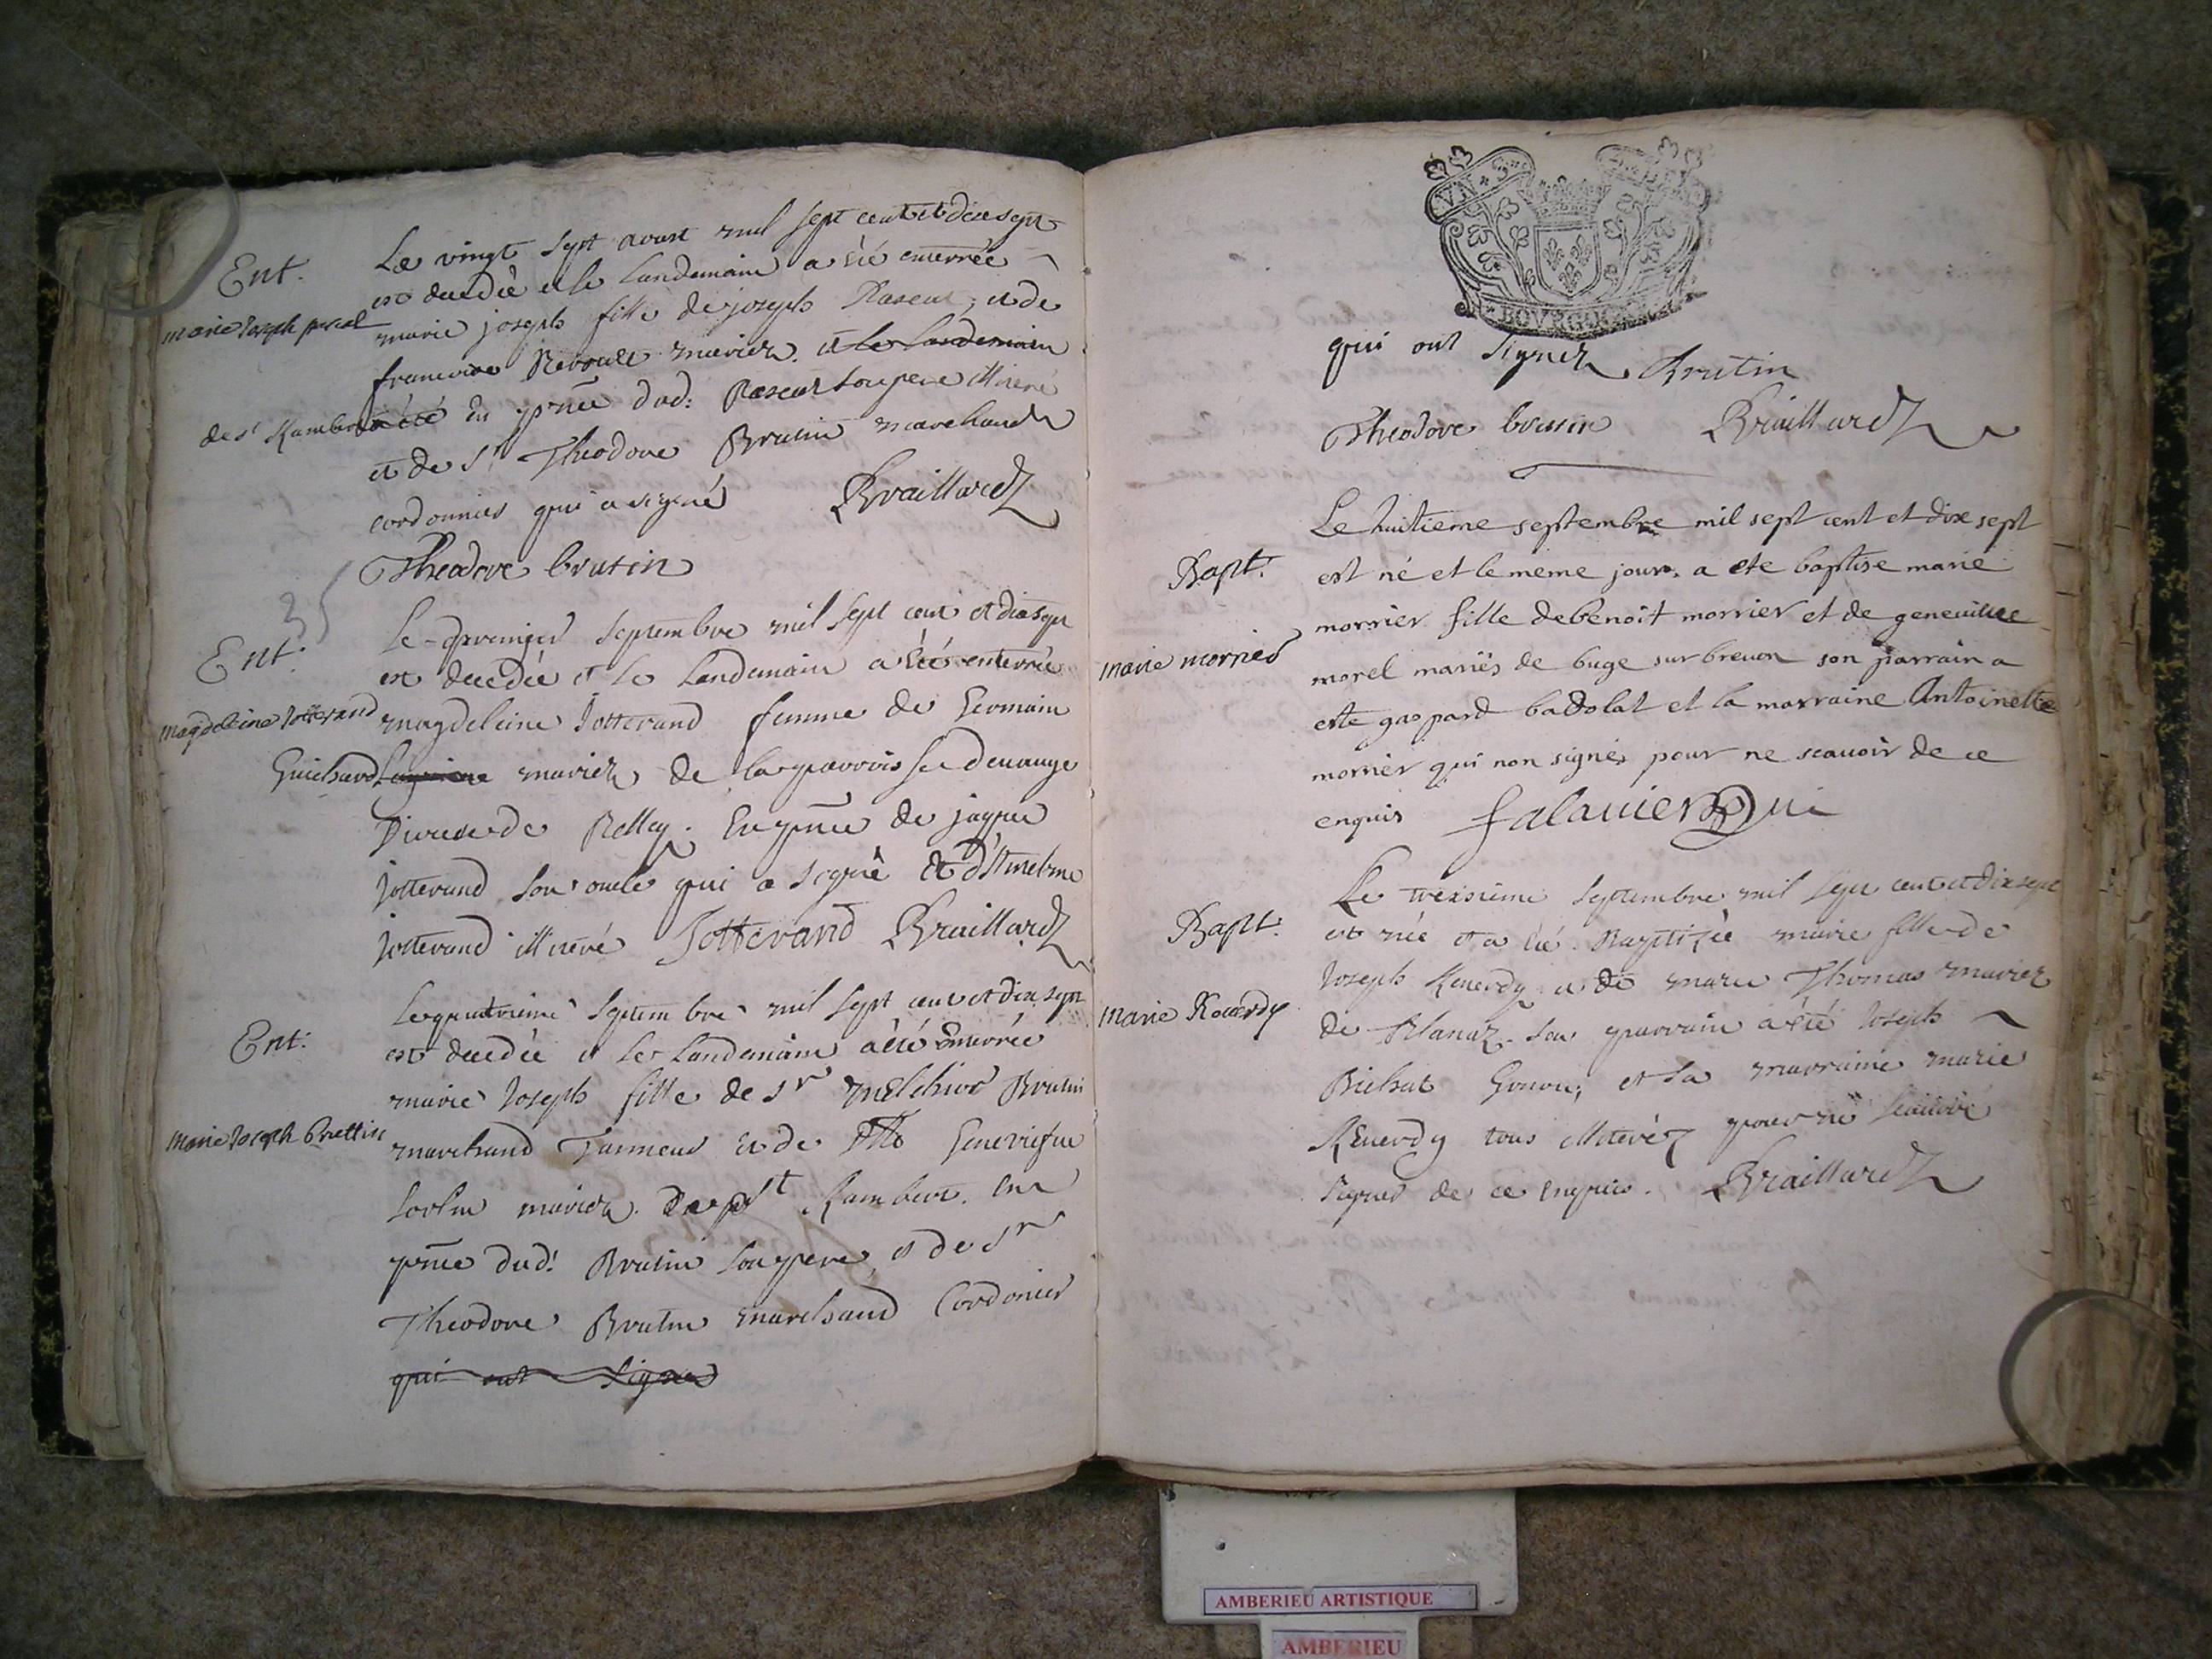 Ent.
marie Joseph pascal
de st Rambert
Le vingt sept aoust mil sept cent et dix sept
est decedée et le landemain a été enterrée
marie joseph fille de joseph Pascal, et de
francoise Revoult mariez. et le landemain
a été En pñce dud: Pascal son pere illiteré
et de Sr Theodore Brutin marchand
cordonnier qui a signé Braillard
Theodore brutin
35
Ent:
magdeleine Jotterand
Le premier Septembre mil sept cent et dix sept
est decedée et le landemain a été enterrée
magdeleine Jotterand femme de Germain
Guichard mariez de la parroisse
de En pñce de
Jotterand son oncle qui a signé et d'Antelme
Jotterand illiteré Jotterand Braillard
Ent:
marie Joseph Bruttin
Le quatrieme Septembre mil sept cent et dix sept
est decedée et le landemain a été Enterrée
marie Joseph fille de Sr melchior Brutin
marchand Tanneur et de Geneviefve
mariez de St Rambert. en
pñce dud: Brutin son pere, et de Sr
Theodore Brutin marchand Cordonier
qui ont signez
VI S
BOVRGOG
qui ont signez Brutin
Theodore brutin Braillard
Bapt.
marie mornier
Le huitieme septembre mil sept cent et dix sept
est né et le meme jour a ete baptise marie
mornier fille de benoit mornier et de genevieve
morel mariés de buge sur brevon son parrain a
este gaspard badolat et la marraine Antoinette
mornier qui non signés pour ne scauoir de ce
enquis falavier
Bapt:
marie Reverdy
Le treisieme Septembre mil sept cent et dix sept
est née et a été Baptizée marie fille de
Joseph Reverdy et de marie Thomas mariez
de Blanaz. son parrain a été Joseph
Bichat et la marraine marie
Reverdy tous illiterés pour ne scauoir
signer de ce enquis. Braillard
AMBERIEU ARTISTIQUE
AMBERIEU